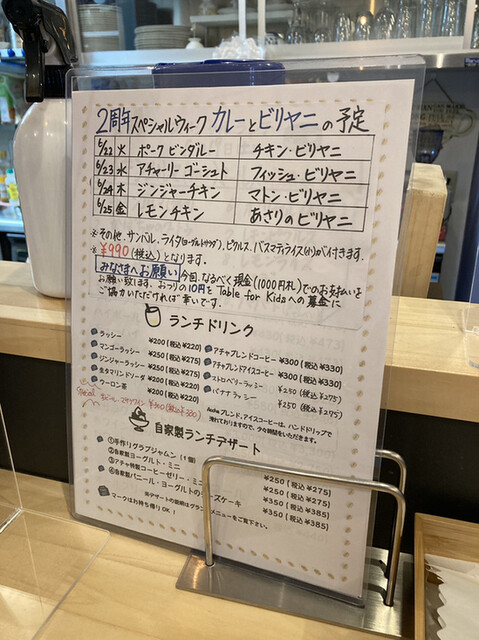 2周年スペシャルウィーク カレーとビリヤニの予定
6/22 火 ポークビンダルー チキン・ビリヤニ
6/23 水 アチャーリーゴーシュト フィッシュ・ビリヤニ
6/24 木 ジンジャーチキン マトン・ビリヤニ
6/25 金 レモンチキン あさりのビリヤニ
※その他、サンバル、ライタ(ヨーグルトサラダ)、ピクルス、バスマティライス(小)が付きます。
※¥990(税込)となります。
みなさまへお願い 今回、なるべく現金(1000円札)でのお支払いを
お願い致します。おつりの10円をTable for Kidsへの募金に
ご協力いただければ幸いです。
ランチドリンク
ラッシー ¥200(税込¥220)
マンゴーラッシー ¥250(税込¥275)
ジンジャーラッシー ¥250(税込¥275)
生タマリンドソーダ ¥200(税込¥220)
ウーロン茶 ¥200(税込¥220)
アチャブレンドコーヒー ¥300(税込¥330)
アチャブレンドアイスコーヒー ¥300(税込¥330)
ストロベリーラッシー ¥250(税込¥275)
バナナラッシー ¥250(税込¥275)
Special ¥300(税込¥330)
ブレンド、アイスコーヒーは、ハンドドリップで
淹れておりますので、少々時間をいただきます。
自家製ランチデザート
①手作りグラブジャムン(1個)
②自家製ヨーグルト・ミニ ¥250(税込¥275)
③アチャ特製コーヒーゼリー・ミニ ¥250(税込¥275)
④自家製パニール・ヨーグルトの ーズケーキ ¥350(税込¥385)
¥350(税込¥385)
※デザートの説明はグラン メニューをご覧下さい。
マークはお持ち帰りOK!